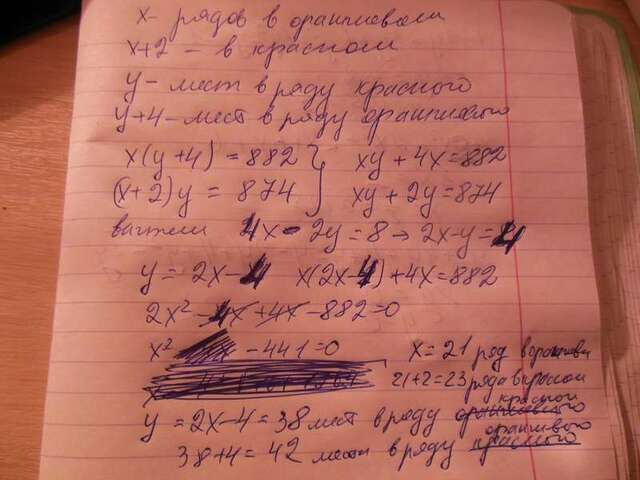 x - рядов в оранжевом
x+2 - в красном
y - мест в ряду красного
y+4 - мест в ряду оранжевого
x(y+4) = 882 } xy + 4x = 882
(x+2)y = 874 xy + 2y = 874
4x - 2y = 8 → 2x - y = 4
y = 2x - 4 x(2x - 4) + 4x = 882
2x² - 4x + 4x - 882 = 0
x² - 441 = 0 x = 21 ряд в оранжев
21+2=23 ряда в красном
y = 2x - 4 = 38 мест в ряду оранжевого красного
38+4 = 42 мест в ряду красного оранжевого